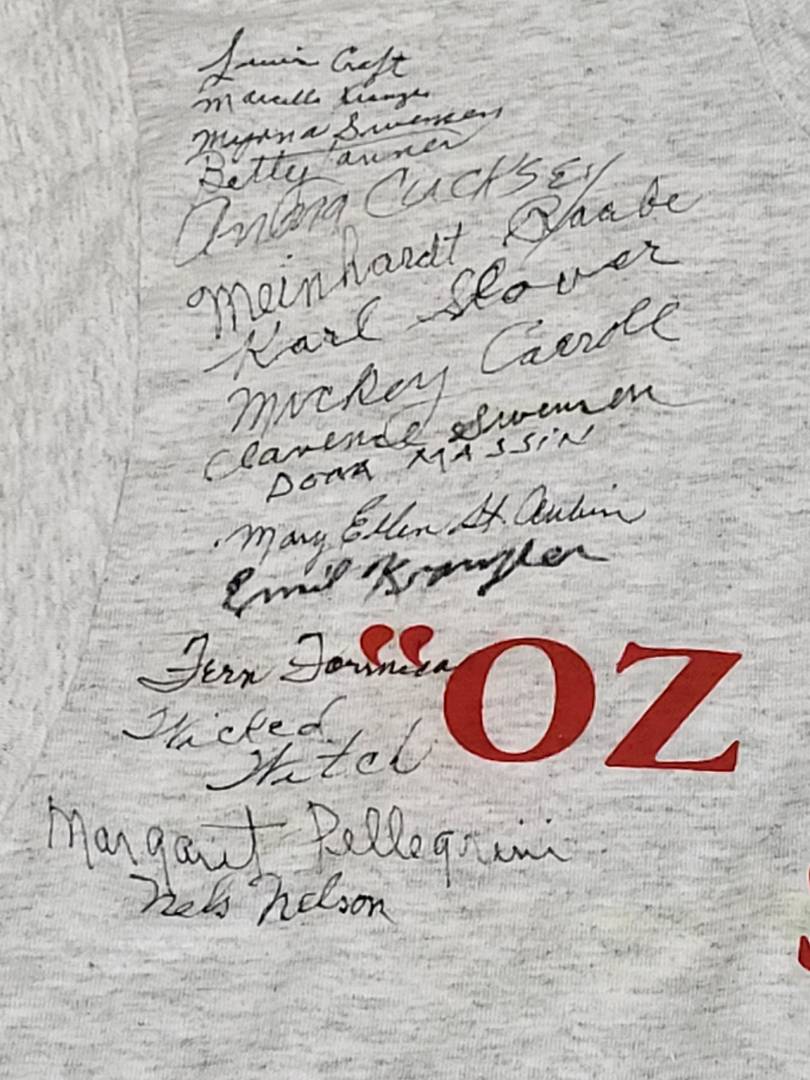 Lewis Croft
Marcella Kranzler
Myrna Swensen
Betty Tanner
Anna Cucksey
Meinhardt Raabe
Karl Slover
Mickey Carroll
Clarence Swensen
DONA MASSIN
Mary Ellen St. Aubin
Emil Kranzler
Fern Formica
Wicked
Witch
"OZ
Margaret Pellegrini
Nels Nelson